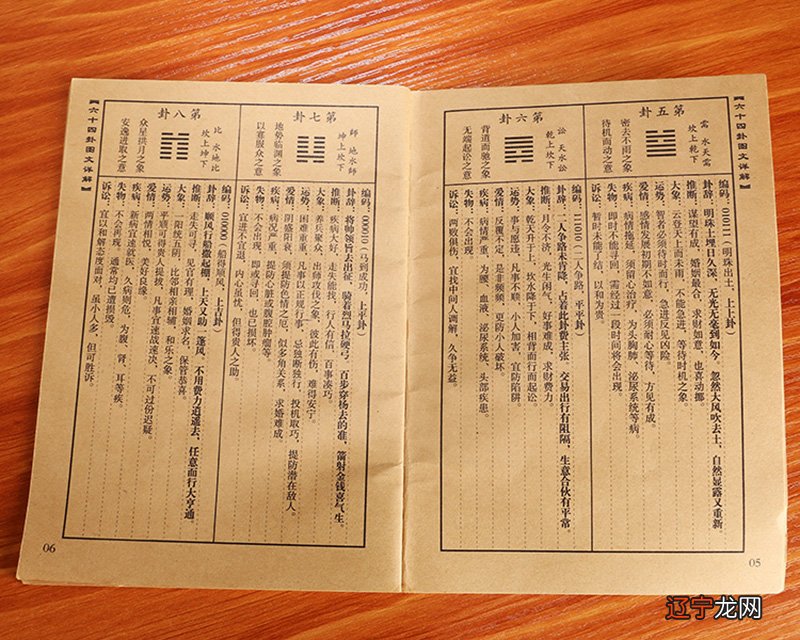 【六十四卦图文详解】
第五卦
需 水天需
坎上乾下
密云不雨之象
待机而动之意
编码：010111（明珠出土，上上卦）
卦辞：明珠土埋日久深，无光无亮到如今，忽然大风吹去土，自然显露又重新。
推断：谋望有成，婚姻最合，求财如意，也喜动挪。
大象：云登天上而未雨，不能急进，等待时机之象。
运势：智者必须待时而行，急进反见凶险。
爱情：感情发展初期不如意，必须耐心等待，方见有成。
疾病：病情拖延，须留心治疗，为头胸肺，泌尿系统等病。
失物：即时不能寻回，需经过一段时间将会出现。
诉讼：暂时未能了结，以和为贵。
第六卦
訟 天水訟
乾上坎下
背道而驰之象
无端起讼之意
编码：111010（二人争路，平平卦）
卦辞：二人争路未肯降，占着此卦费主张，交易出行有阻隔，生意合伙有平常。
推断：月令不济，光生闲气，好事难成，求财费力。
大象：乾天升于上，坎水降于下，相背而行而起讼。
运势：事与愿违，凡事不顺，小人加害，宜防陷阱。
爱情：反覆不定，是非频频，更防小人破坏。
疾病：病情严重，为腰，血液，泌尿系统，头部疾患。
失物：不会出现。
诉讼：两败俱伤，宜找中间人调解，久争无益。
05
第七卦
師 地水師
坤上坎下
地势临渊之象
以寡服众之意
编码：000010（马到成功，上平卦）
卦辞：将帅领旨去出征，骑着烈马拉硬弓，百步穿杨去的准，箭射金钱喜气生。
推断：疾病大好，走失能找，行人有信，百事凑巧。
大象：养兵聚众，出师攻伐之象，彼此有伤，难得安宁。
运势：困难重重，凡事以正规行事，忌独断独行，投机取巧，提防潜在敌人。
爱情：阴盛阳衰，须提防色情之厄，似多角关系，求婚难成。
疾病：病况严重，提防心脏或腹腔肿瘤等。
失物：不会出现，即或寻回，也已损坏。
诉讼：宜进不宜退，内心虽忧，但得贵人之助。
第八卦
比 水地比
坎上坤下
众星拱月之象
安逸进取之意
编码：010000（船得顺风，上吉卦）
卦辞：顺风行船撒起棚，上天又助一蓬风，不用费力逍遥去，任意而行大亨通。
推断：走失可寻，见官有理，婚姻求名，保管恭喜。
大象：一阳统五阴，比邻相亲相辅，和乐之象。
运势：平顺可得贵人提拔，凡事宜速战速决，不可过份迟疑。
爱情：两情相悦，美好良缘。
疾病：新病宜速就医，久病则危，为腹，肾，耳等疾。
失物：不会再现，通常均已遭损毁。
诉讼：宜以和解态度面对，虽小人多，但可胜诉。
【六十四卦图文详解】
06
辽宁龙网